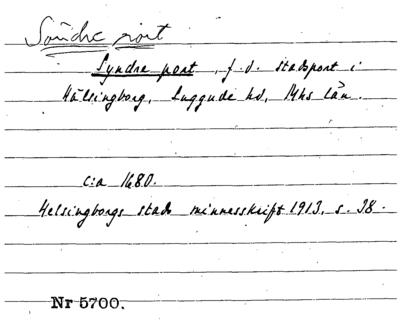 Söndre port
Syndre port, f.d. stadsport i
Hälsingborg, Luggude hd, Mhs län.
c:a 1680.
Helsingborgs stads minnesskrift 1913, s. 38.
Nr 5700.